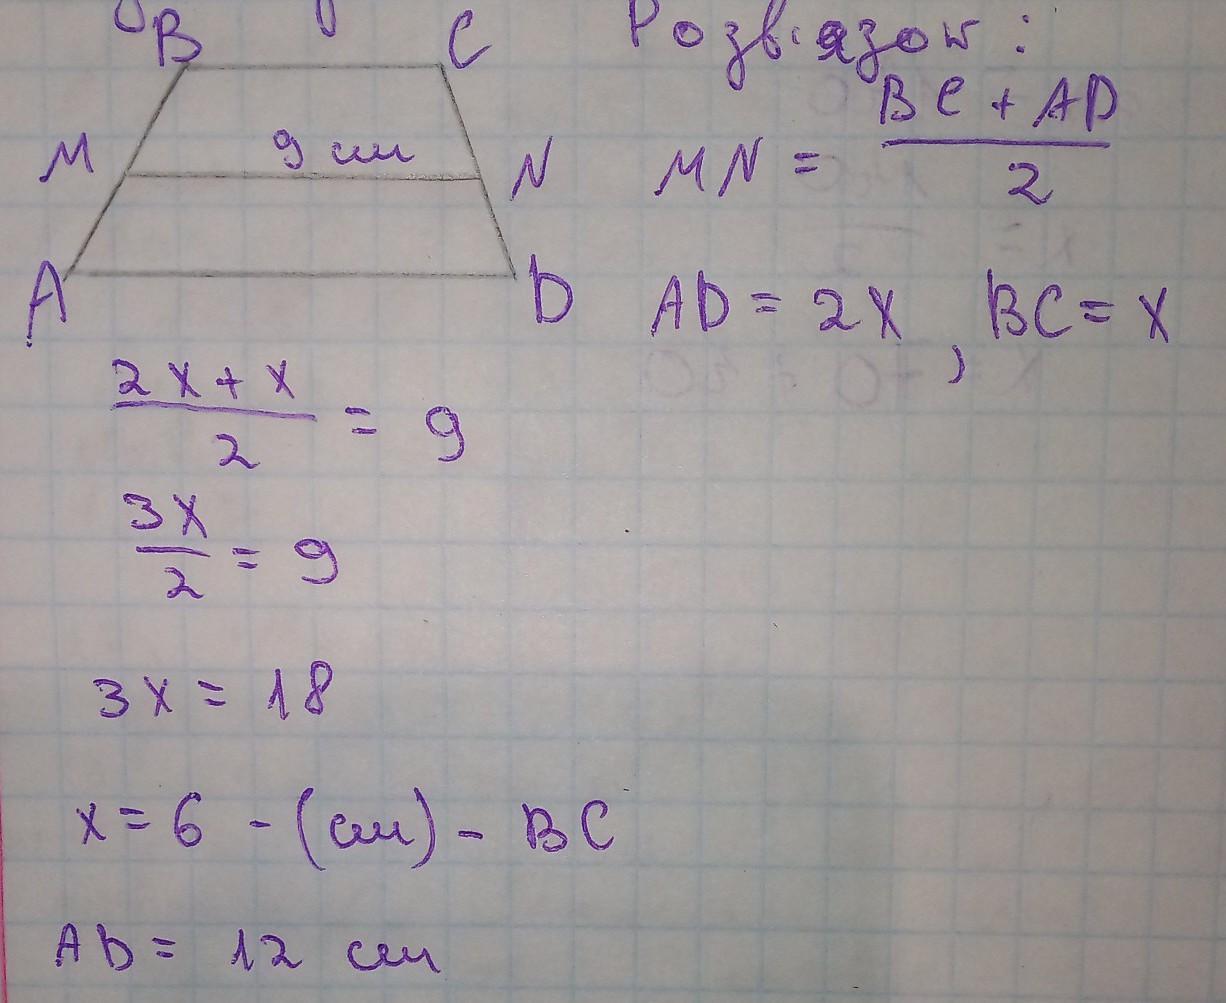 B C
M 9 см N
A D
Розвязок:
MN = (BC + AD) / 2
AD = 2x, BC = x
(2x + x) / 2 = 9
3x / 2 = 9
3x = 18
x = 6 - (см) - BC
AD = 12 см